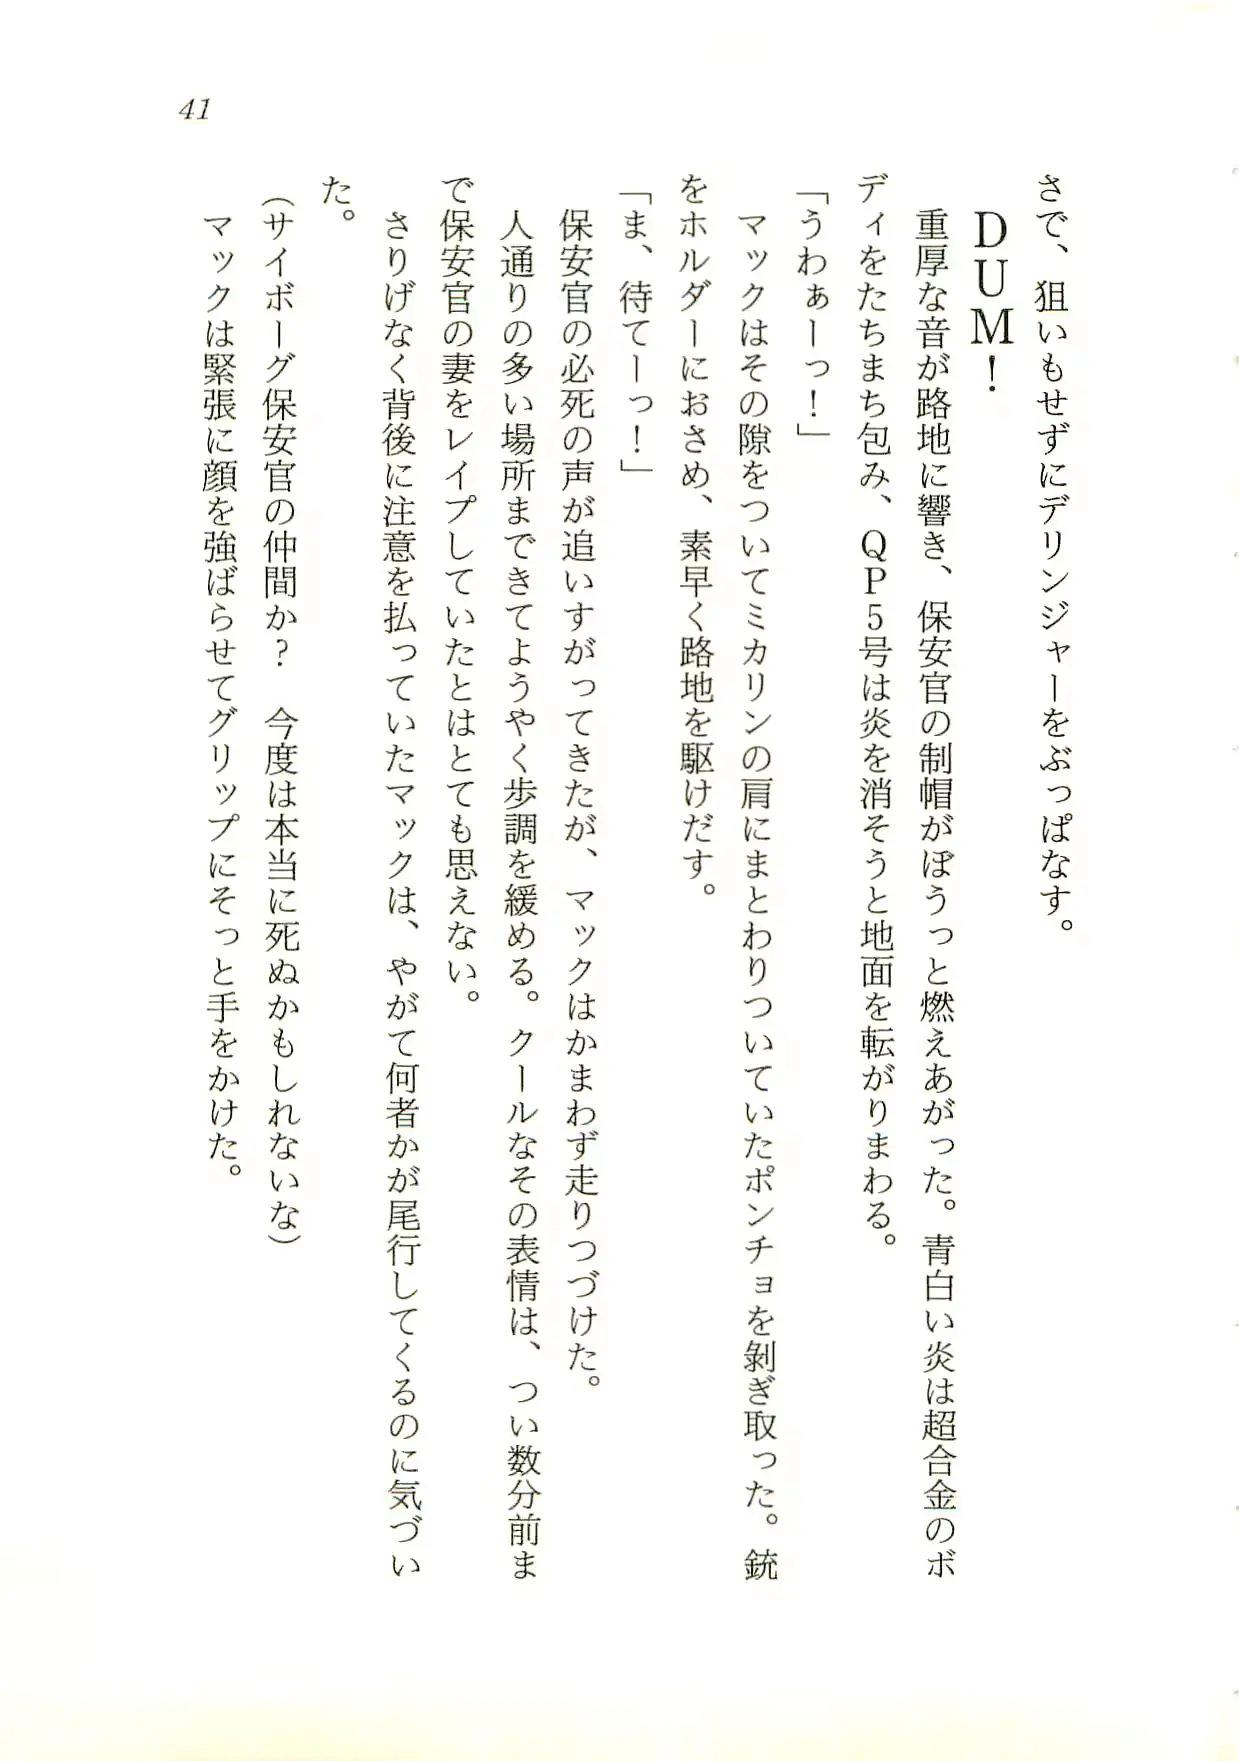 41
さで、狙いもせずにデリンジャーをぶっぱなす。
DUM！
重厚な音が路地に響き、保安官の制帽がぼうっと燃えあがった。青白い炎は超合金のボ
ディをたちまち包み、QP5号は炎を消そうと地面を転がりまわる。
「うわぁーっ！」
マックはその隙をついてミカリンの肩にまとわりついていたポンチョを剝ぎ取った。銃
をホルダーにおさめ、素早く路地を駆けだす。
「ま、待てーっ！」
保安官の必死の声が追いすがってきたが、マックはかまわず走りつづけた。
人通りの多い場所まできてようやく歩調を緩める。クールなその表情は、つい数分前ま
で保安官の妻をレイプしていたとはとても思えない。
さりげなく背後に注意を払っていたマックは、やがて何者かが尾行してくるのに気づい
た。
（サイボーグ保安官の仲間か？　今度は本当に死ぬかもしれないな）
マックは緊張に顔を強ばらせてグリップにそっと手をかけた。